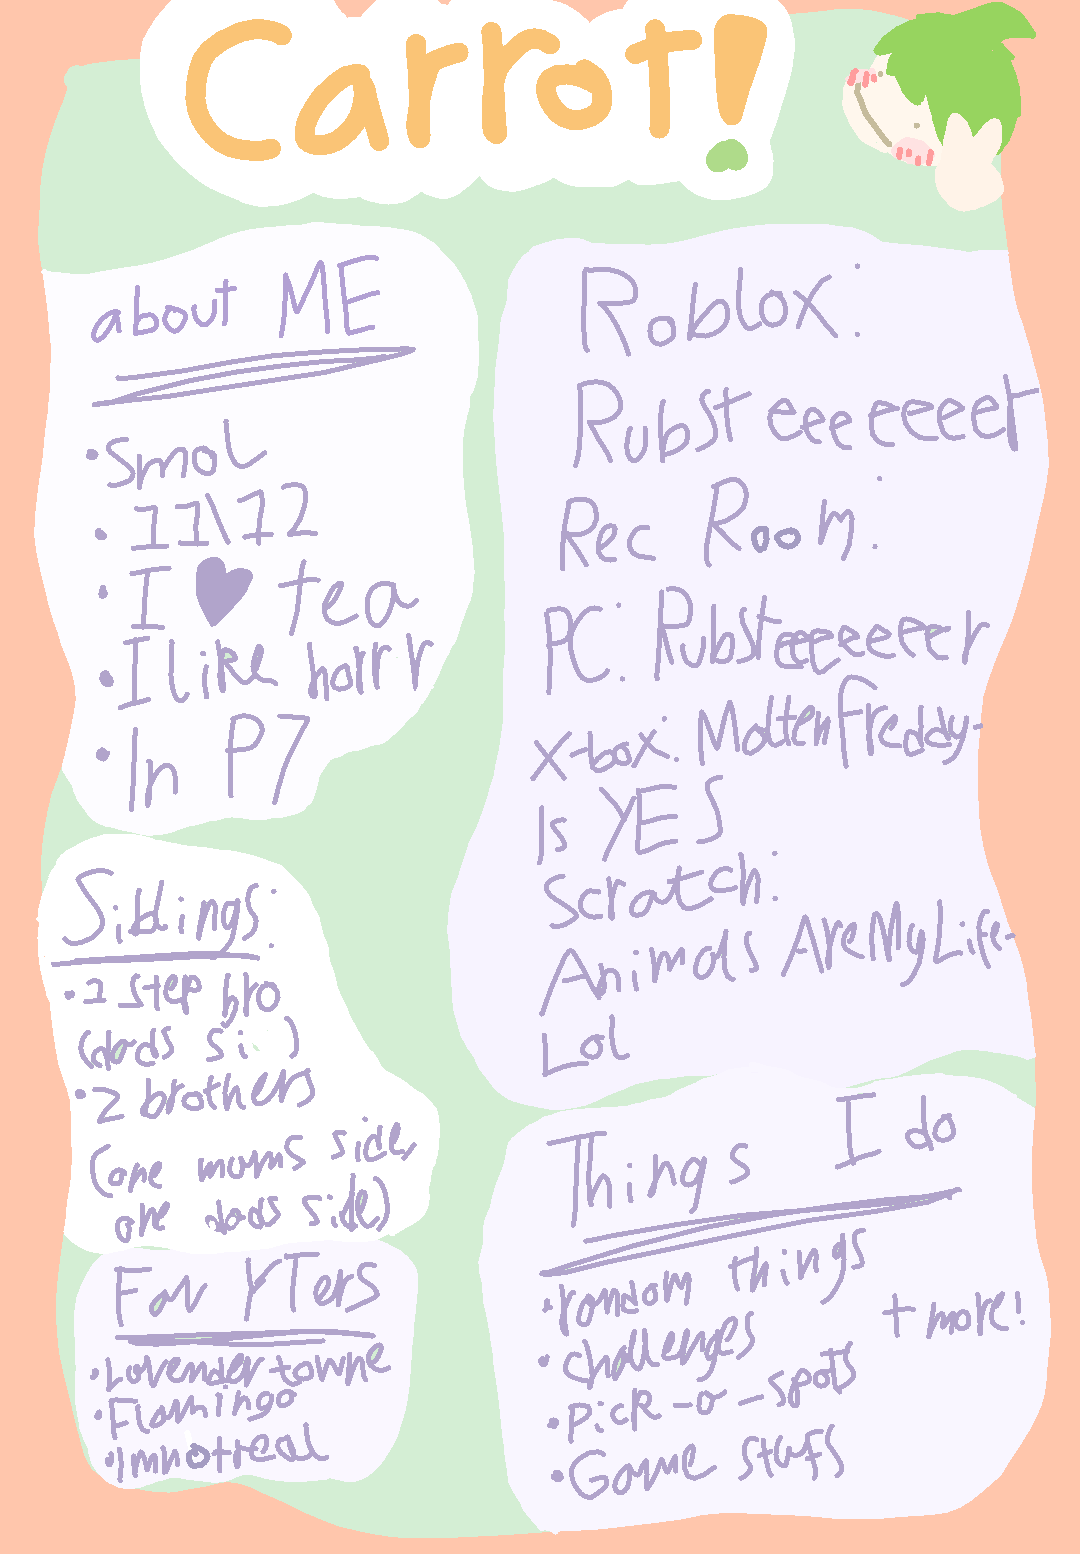 Carrot!
about ME
• Smol
• 11\12
• I ♥ tea
• I like horrr
• In P7
Siblings:
• 1 step bro
(dads si )
• 2 brothers
(one mums side,
one dads side)
Fav YTers
• Lavendertowne
• Flamingo
• Imnotreal
Roblox:
Rubsteeeeeeer
Rec Room:
PC: Rubsteeeeeeer
X-box: MoltenFreddy-
Is YES
Scratch:
Animals AreMyLife-
Lol
Things I do
• random things
• challenges
+ more!
• Pick-a-spots
• Game stufs